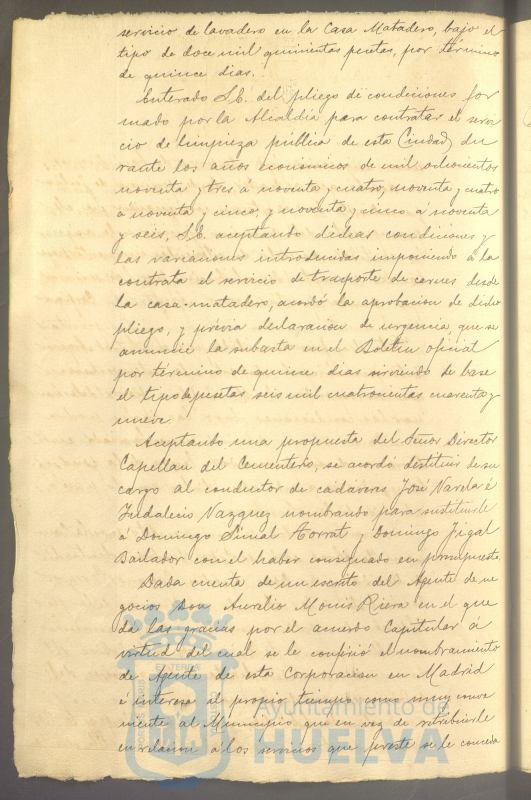 servicio de lavadero en la Casa Matadero, bajo el
tipo de doce mil quinientas pesetas, por término
de quince dias.
Enterado S.E. del pliego de condiciones for
mado por la Alcaldia para contratar el servi
cio de limpieza pública de esta Ciudad, du
rante los años económicos de mil ochocientos
noventa y tres á noventa y cuatro, noventa y cuatro
á noventa y cinco, y noventa y cinco á noventa
y seis, S.E. aceptando dichas condiciones y
las variaciones introducidas imponiendo á la
contrata el servicio de trasporte de carnes desde
la casa-matadero, acordó la aprobacion de dicho
pliego, y prévia declaracion de urgencia, que se
anuncie la subasta en el Boletin oficial
por término de quince dias sirviendo de base
el tipo de pesetas seis mil cuatrocientas cuarenta y
nueve.
Aceptando una propuesta del Señor Director
Capellan del Cementerio, se acordó destituir de su
cargo al conductor de cadáveres José Varela é
Indalecio Vazquez nombrando para sustituirle
á Domingo Torrat y Domingo
Bailador con el haber consignado en presupuesto.
Dada cuenta de un escrito del Agente de ne
gocios Don Aurelio Monis Riera en el que
da las gracias por el acuerdo Capitular á
virtud del cual se le confirió el nombramiento
de Agente de esta Corporacion en Madrid
é interesa al propio tiempo como muy conve
niente al Municipio que en vez de retribuirle
en relacion á los servicios que preste se le conceda
Ayuntamiento de
HUELVA